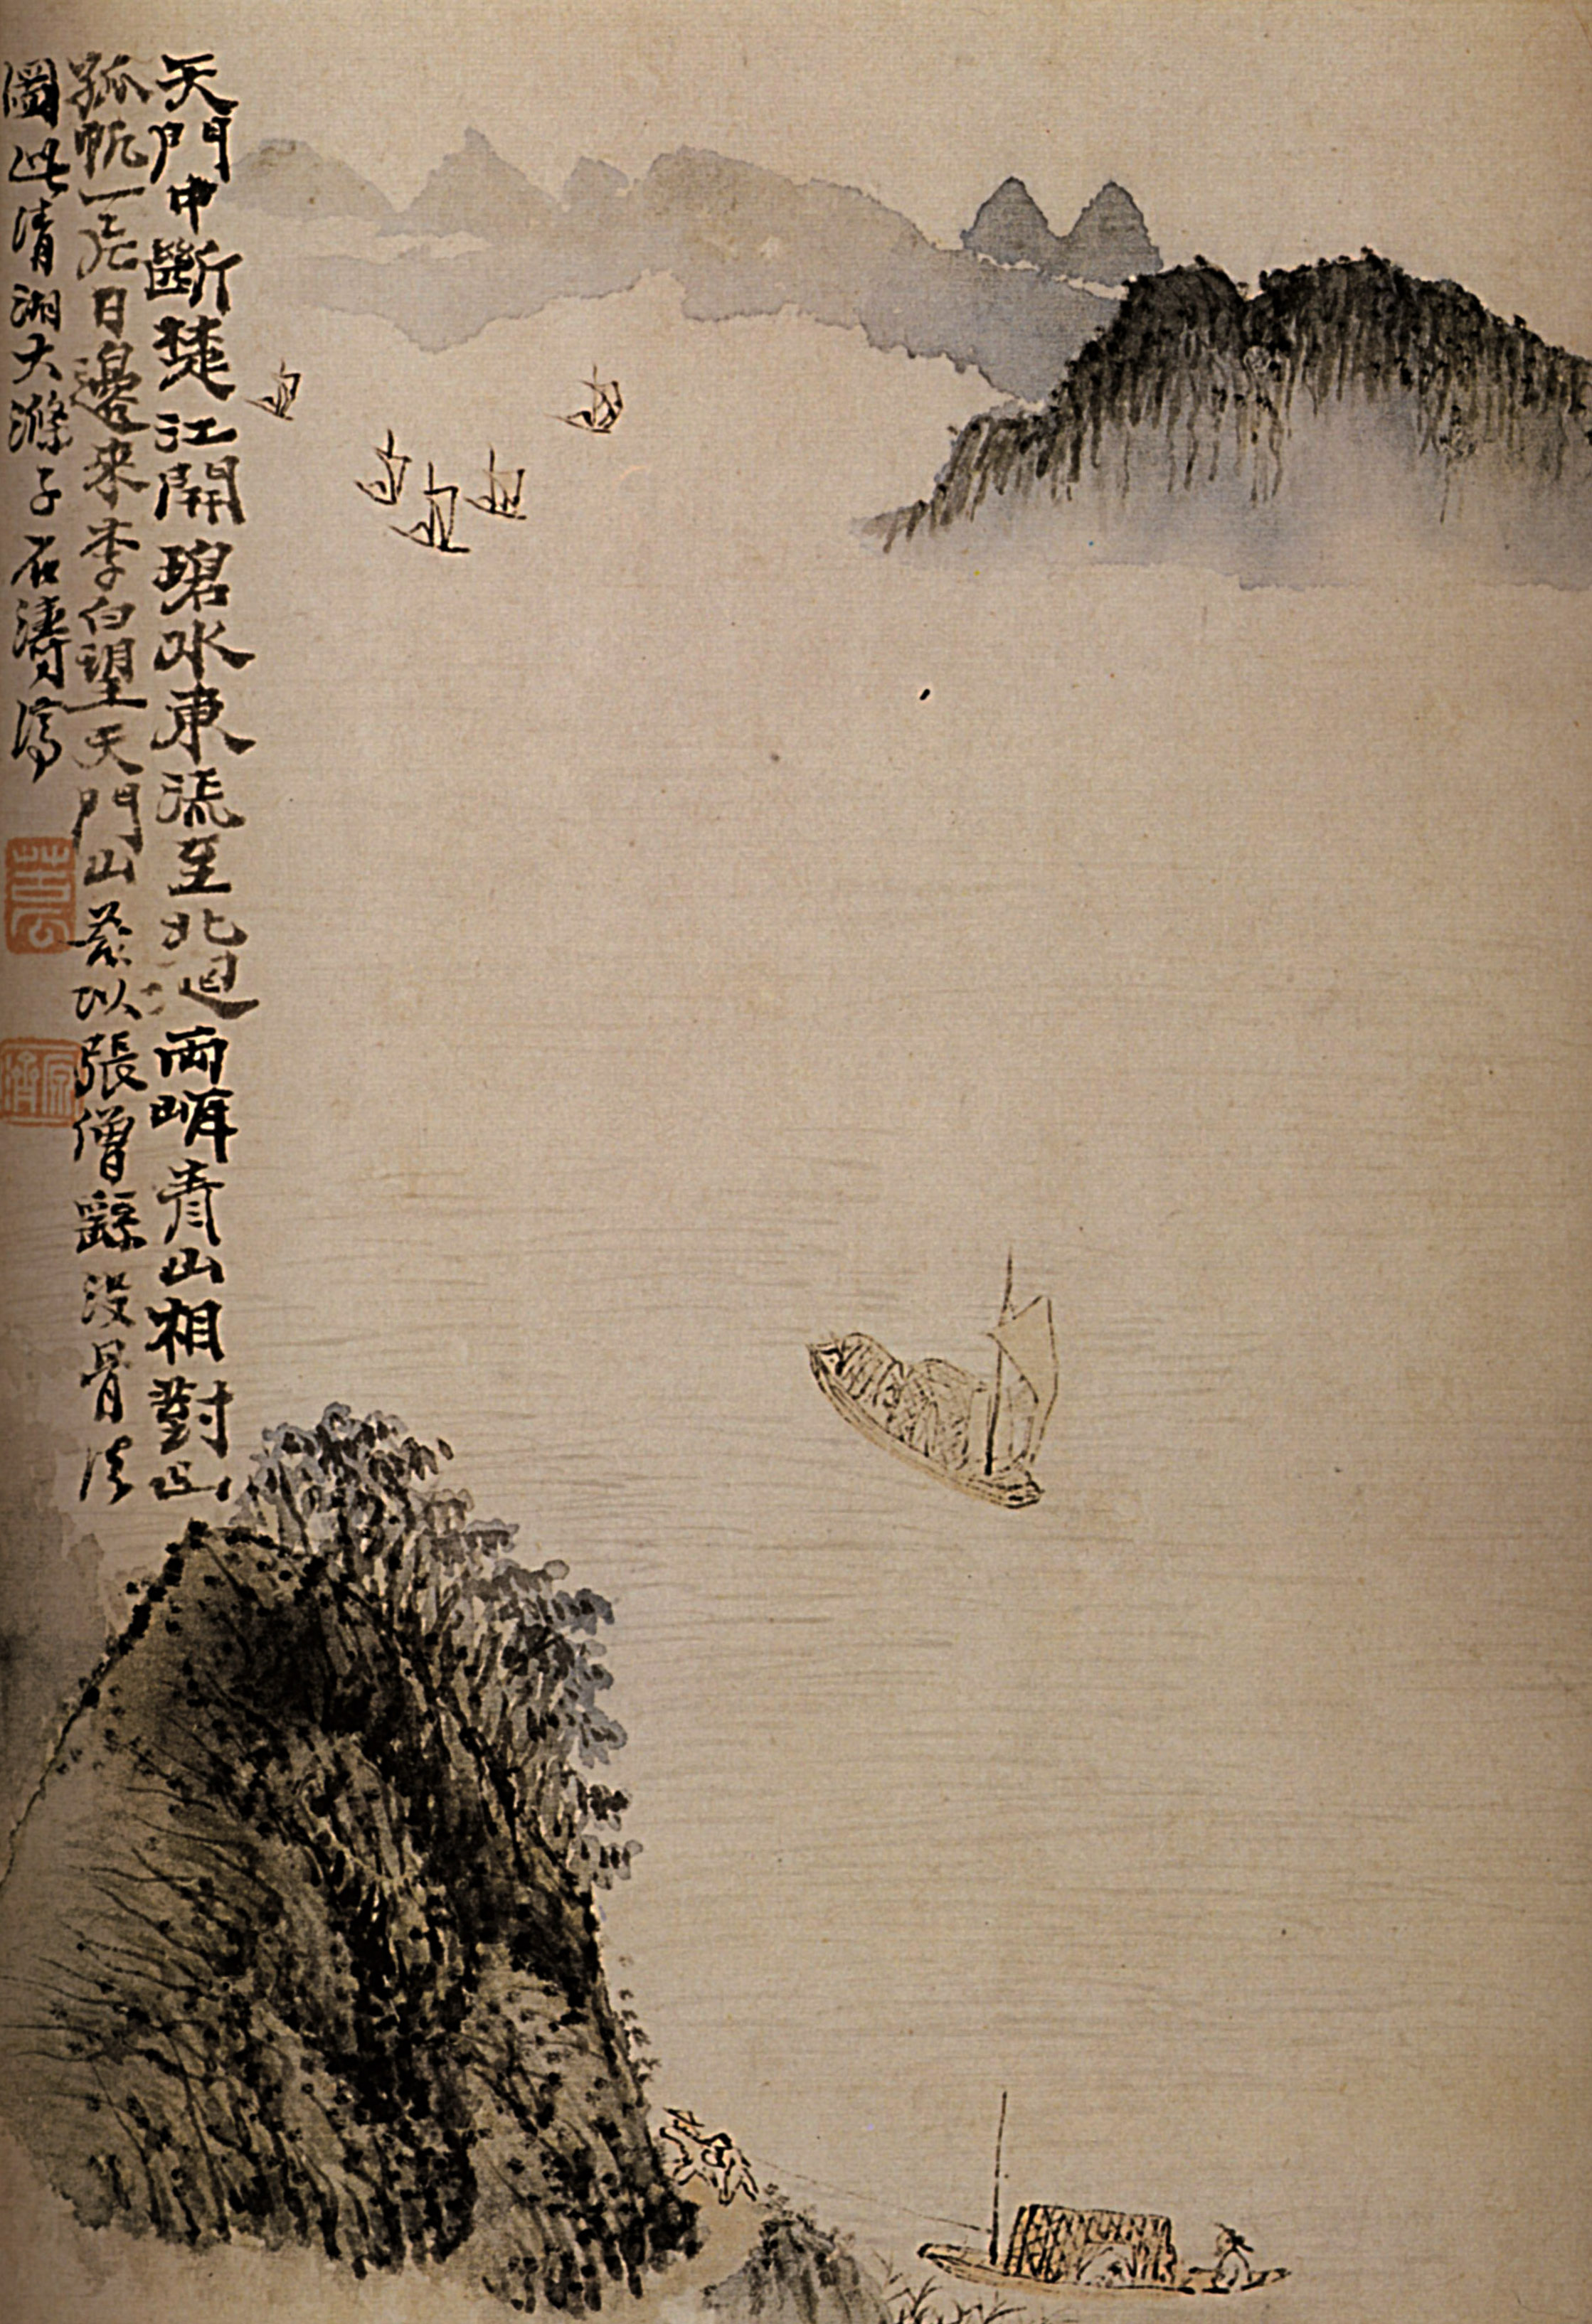 天門中斷楚江開碧水東流至北迴兩岸青山相對出
孤帆一片日邊來李白望天門山茲以張僧繇沒骨法
圖此清湘大滌子石濤濟
苦瓜
原濟